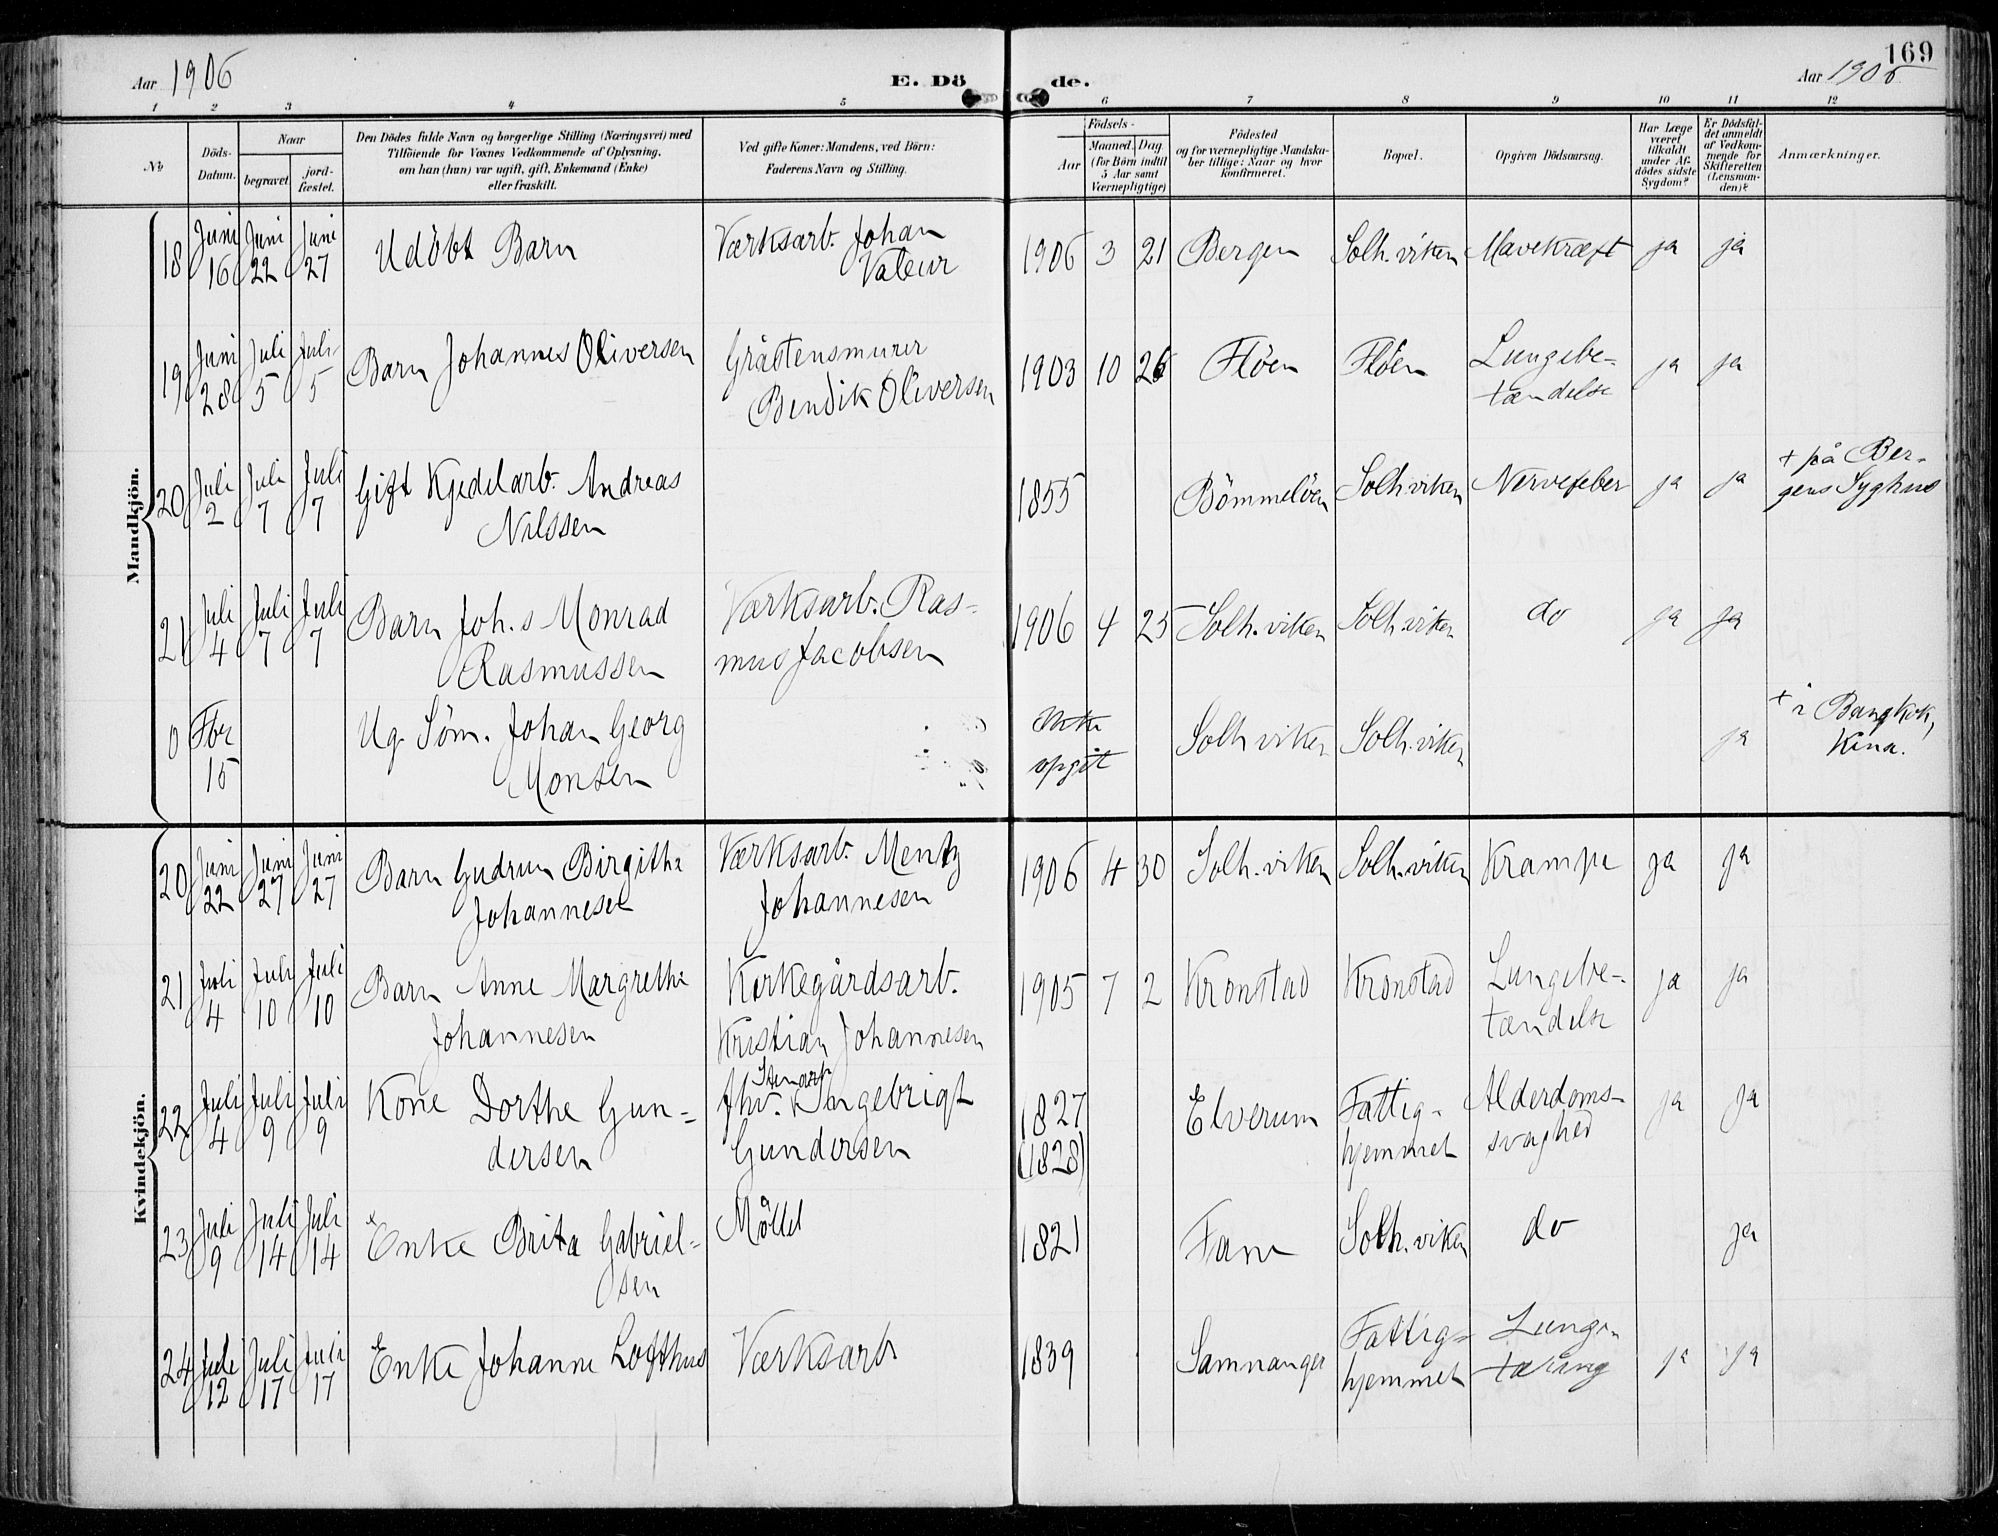 169
Aar 1906
E. Dö
de.
Aar 1906
1 2 3 4 5 6 7 8 9 10 11 12
No
Döds-
Datum.
Naar
begravet.
jord-
fæstet.
Den Dödes fulde Navn og borgerlige Stilling (Næringsvei) med
Tilföiende for Voxnes Vedkommende af Oplysning,
om han (hun) var ugift, gift, Enkemand (Enke)
eller fraskilt.
Ved gifte Koner: Mandens, ved Börn:
Faderens Navn og Stilling.
Födsels-
Aar
Maaned. Dag.
(for Börn indtil
5 Aar samt
Værnepligtige)
Födested
og for værnepligtige Mandska-
ber tillige: Naar og hvor
konfirmeret.
Bopæl.
Opgiven Dödsaarsag.
Har Læge
været
tilkaldt
under Af-
dödes sidste
Sygdom?
Er Dödsfal-
det anmeldt
af Vedkom-
mende for
Skifteretten
(Lensman-
den)?
Anmærkninger.
Mandkjön.
18 Juni 16 Juni 22 Juni 27 Udöbt Barn Værksarb. Johan
Valeur 1906 3 21 Bergen Solh.viken Mavekræft ja ja
19 Juni 28 Juli 5 Juli 5 Barn Johannes Oliversen Gråstensmurer
Bendik Oliversen 1903 10 26 Flöen Flöen Lungebe-
tændelse ja ja
20 Juli 2 Juli 7 Juli 7 Gift Kjedelarb. Andreas
Nilssen 1855 Bömmelöen Solh.viken Nervefeber ja ja + på Ber-
gens Syghus
21 Juli 4 Juli 7 Juli 7 Barn Joh.s Monrad
Rasmussen Værksarb. Ras-
mus Jacobsen 1906 4 25 Solh.viken Solh.viken do ja ja
0 Fbr 15 Ug. Söm. Johan Georg
Monsen Ikke
opgit Solh viken Solh.viken ja + i Bangkok,
Kina.
Kvindekjön.
20 Juni 22 Juni 27 Juni 27 Barn Gudrun Birgitha
Johannesen Værksarb. Mentz
Johannesen 1906 4 30 Solh.viken Solh.viken Krampe ja ja
21 Juli 4 Juli 10 Juli 10 Barn Anne Margrethe
Johannesen Kirkegårdsarb.
Kristian Johannesen 1905 7 2 Kronstad Kronstad Lungebe-
tændelse ja ja
22 Juli 4 Juli 9 Juli 9 Kone Dorthe Gun-
dersen fhv. Stenarb Ingebrigt
Gundersen 1827
(1828) Elverum Fattig-
hjemmet Alderdoms-
svaghed ja ja
23 Juli 9 Juli 14 Juli 14 Enke Brita Gabriel-
sen 1821 Fane Solh.viken do ja
24 Juli 12 Juli 17 Juli 17 Enke Johanne Lofthus Værksarb 1839 Samnanger Fattig-
hjemmet Lunge-
tæring ja ja